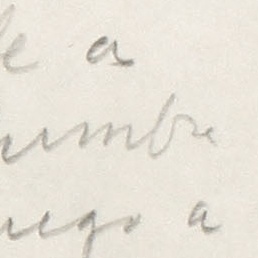 le a
umbre
uego a